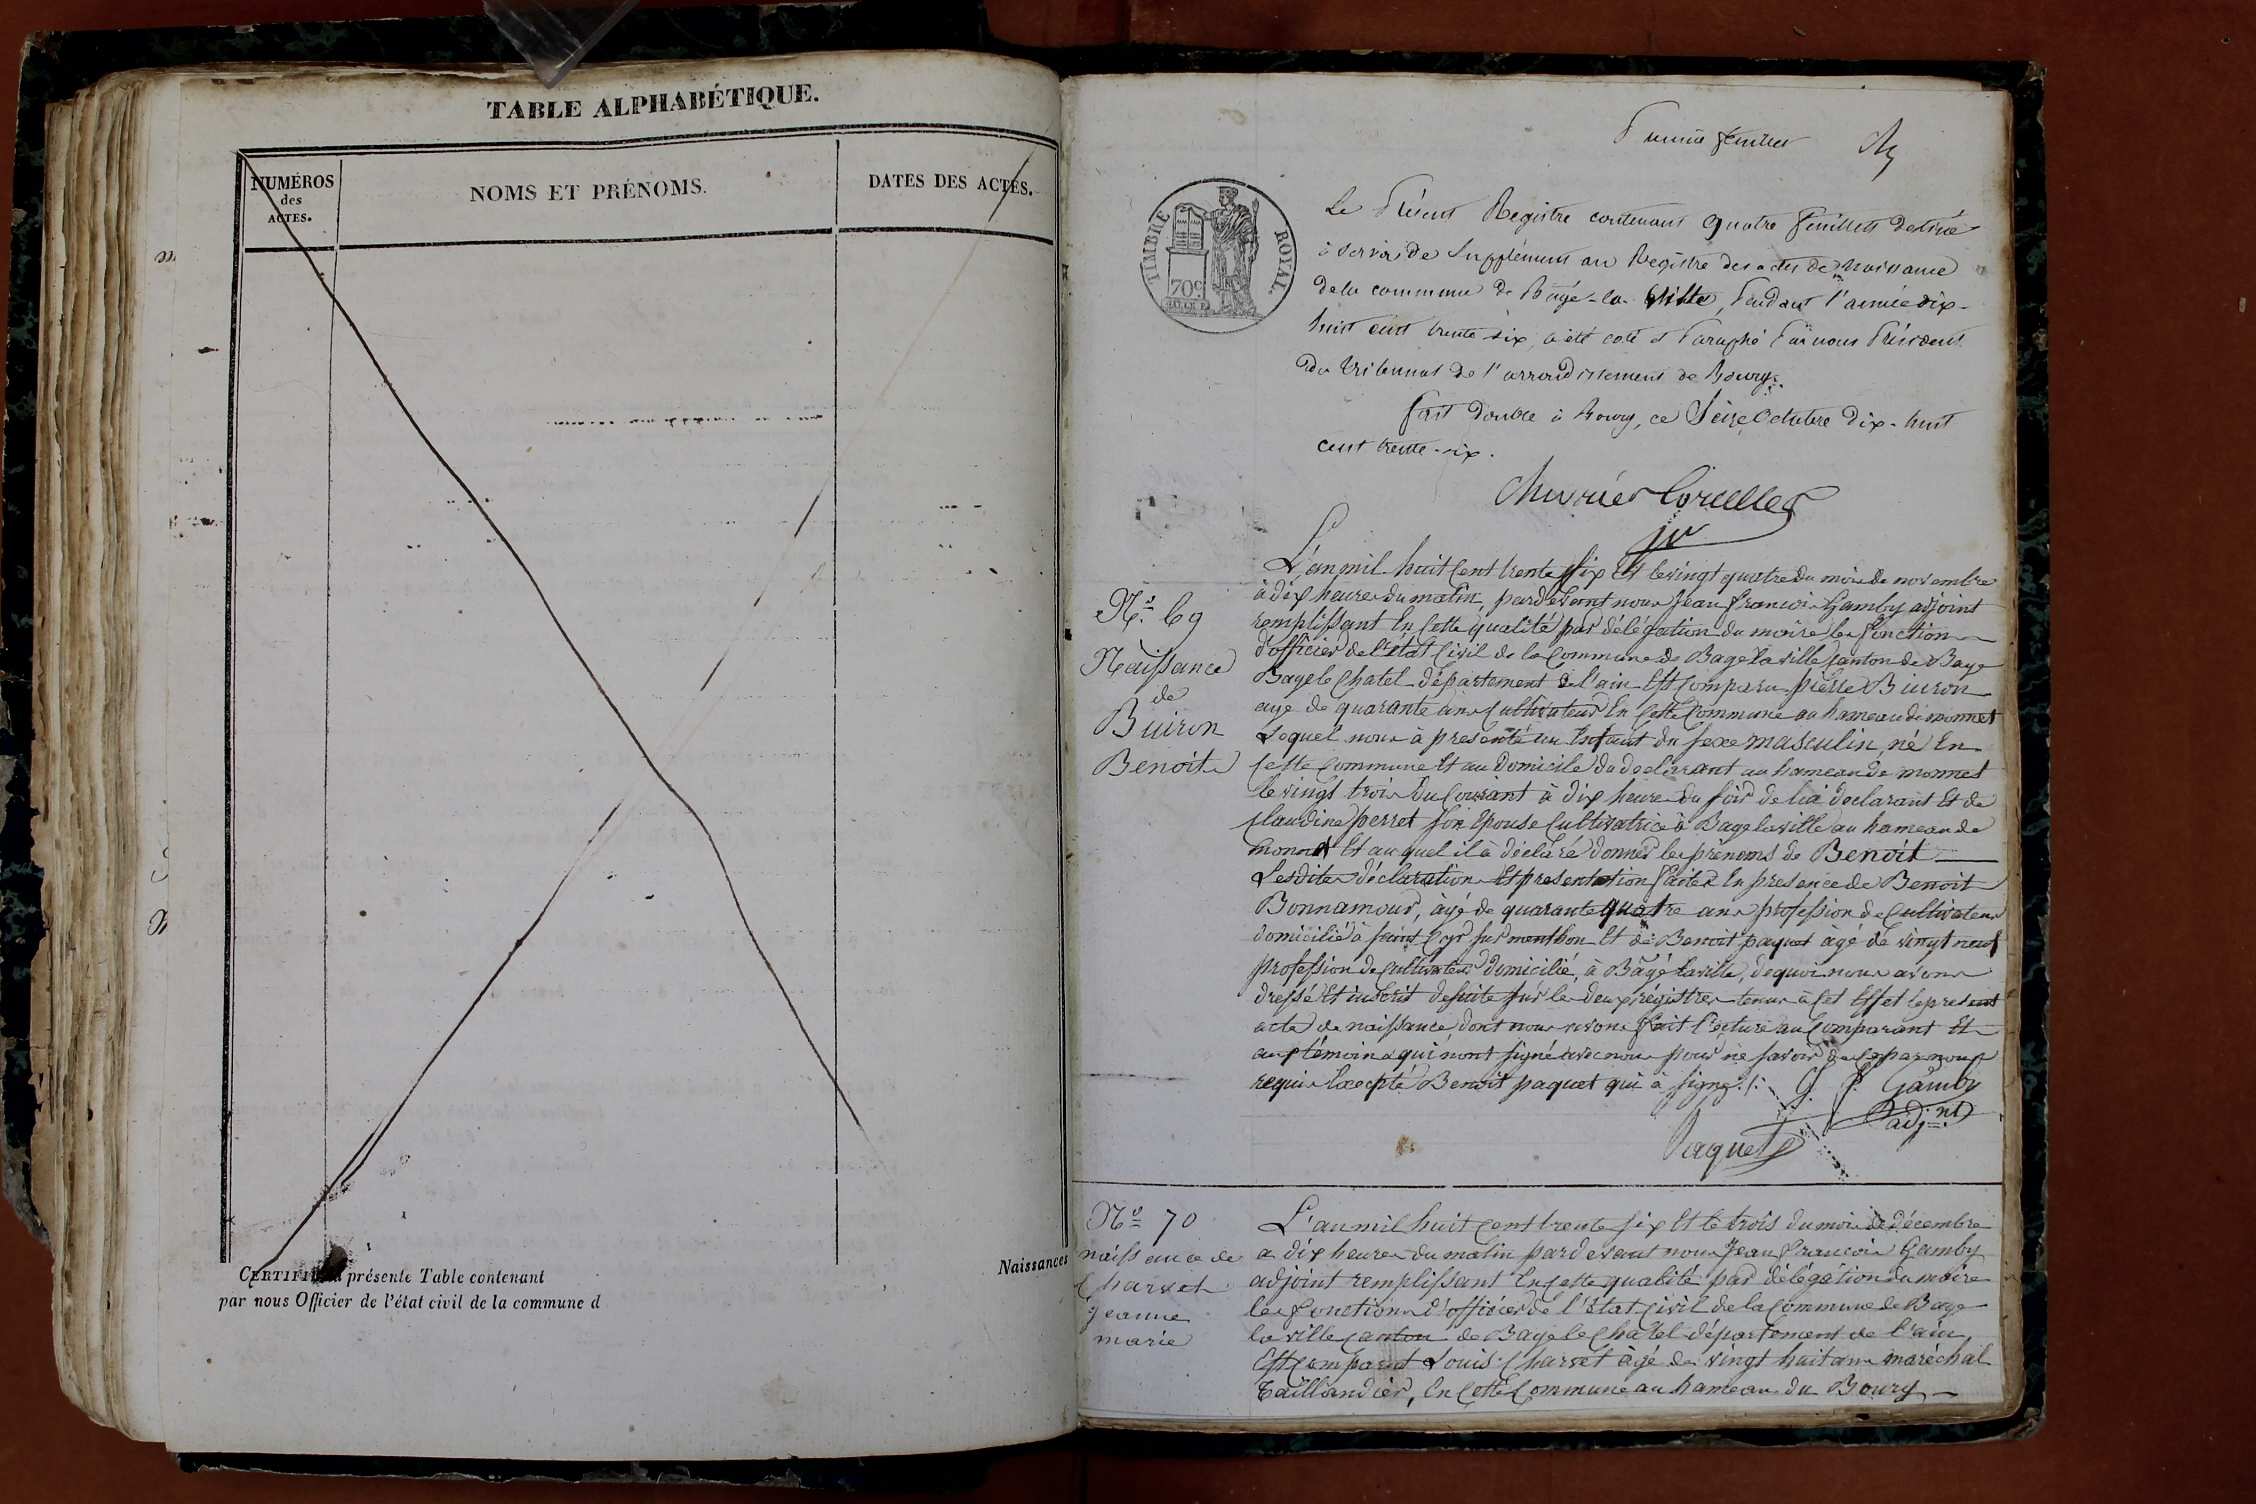 TABLE ALPHABÉTIQUE.
NUMÉROS
des
ACTES.
NOMS ET PRÉNOMS.
DATES DES ACTES.
présente Table contenant
par nous Officier de l'état civil de la commune d
Naissances
Premier feuillet
TIMBRE ROYAL.
70c
Le Présent Registre contenant quatre feuillets destiné
à servir de Supplément au Registre des actes de Naissance
de la commune de Bâgé-la-Ville, Pendant l'année dix-
huit cent trente six, a été coté et Paraphé Par nous Président
du tribunal de l'arrondissement de Bourg.
fait double à Bourg, ce Seize Octobre dix-huit
cent trente-six.
Chevrier Corcelles
N.° 69
Naissance
de
Buiron
Benoit
L'an mil huit Cent trente Six Et le vingt quatre du mois de novembre
à dix heures du matin, pardevant nous Jean François Gamby adjoint
remplissant En Cette qualité par délégation du maire les fonctions
d'officier de l'état Civil de la Commune de Bage la ville Canton de Bage
Bage le Chatel département de l'ain Est Comparu pierre Biuron
age de quarante ans Cultivateur En Cette Commune au hameau de monnet
Lequel nous à presenté un Enfant du sexe masculin né En
Cette Commune Et au Domicile du declarant au hameau de monnet
le vingt trois du Courant à dix heures du soir de lui declarant Et de
Claudine perret son Epouse Cultivatrice à Bage la ville au hameau de
monnet Et auquel il à déclaré donner les prénoms de Benoit
Lesdites déclaration Et presentation faites En presence de Benoit
Bonnamour, âgé de quarante quatre ans profession de Cultivateur
domicilié à saint Cyr sur menthon Et de Benoit paquet âgé de vingt neuf
profession de Cultivateur domicilié, à Bâgé la ville, dequoi nous avons
dressé Et inscrit desuite sur les deux régistres tenus à Cet Effet le present
acte de naissance dont nous avons fait lecture au Comparant Et
aux témoins qui n'ont signé avec nous pour ne savoir de Ce par nous
requis Excepté Benoit paquet qui à signé./.
J. F. Gamby
adj.nt
Paquet
N.° 70
naissance de
Charvet
Jeanne
marie
L'an mil huit Cent trente six Et le trois du mois de décembre
a dix heures du matin pardevant nous Jean François Gamby
adjoint remplissant En Cette qualité par délégation du maire
les fonctions d'officier de l'Etat Civil de la Commune de Bage
la ville Canton de Bage le Chatel département de l'ain,
Est Comparut Louis Charvet âgé de vingt huit ans maréchal
taillandier, En Cette Commune au hameau du Bourg